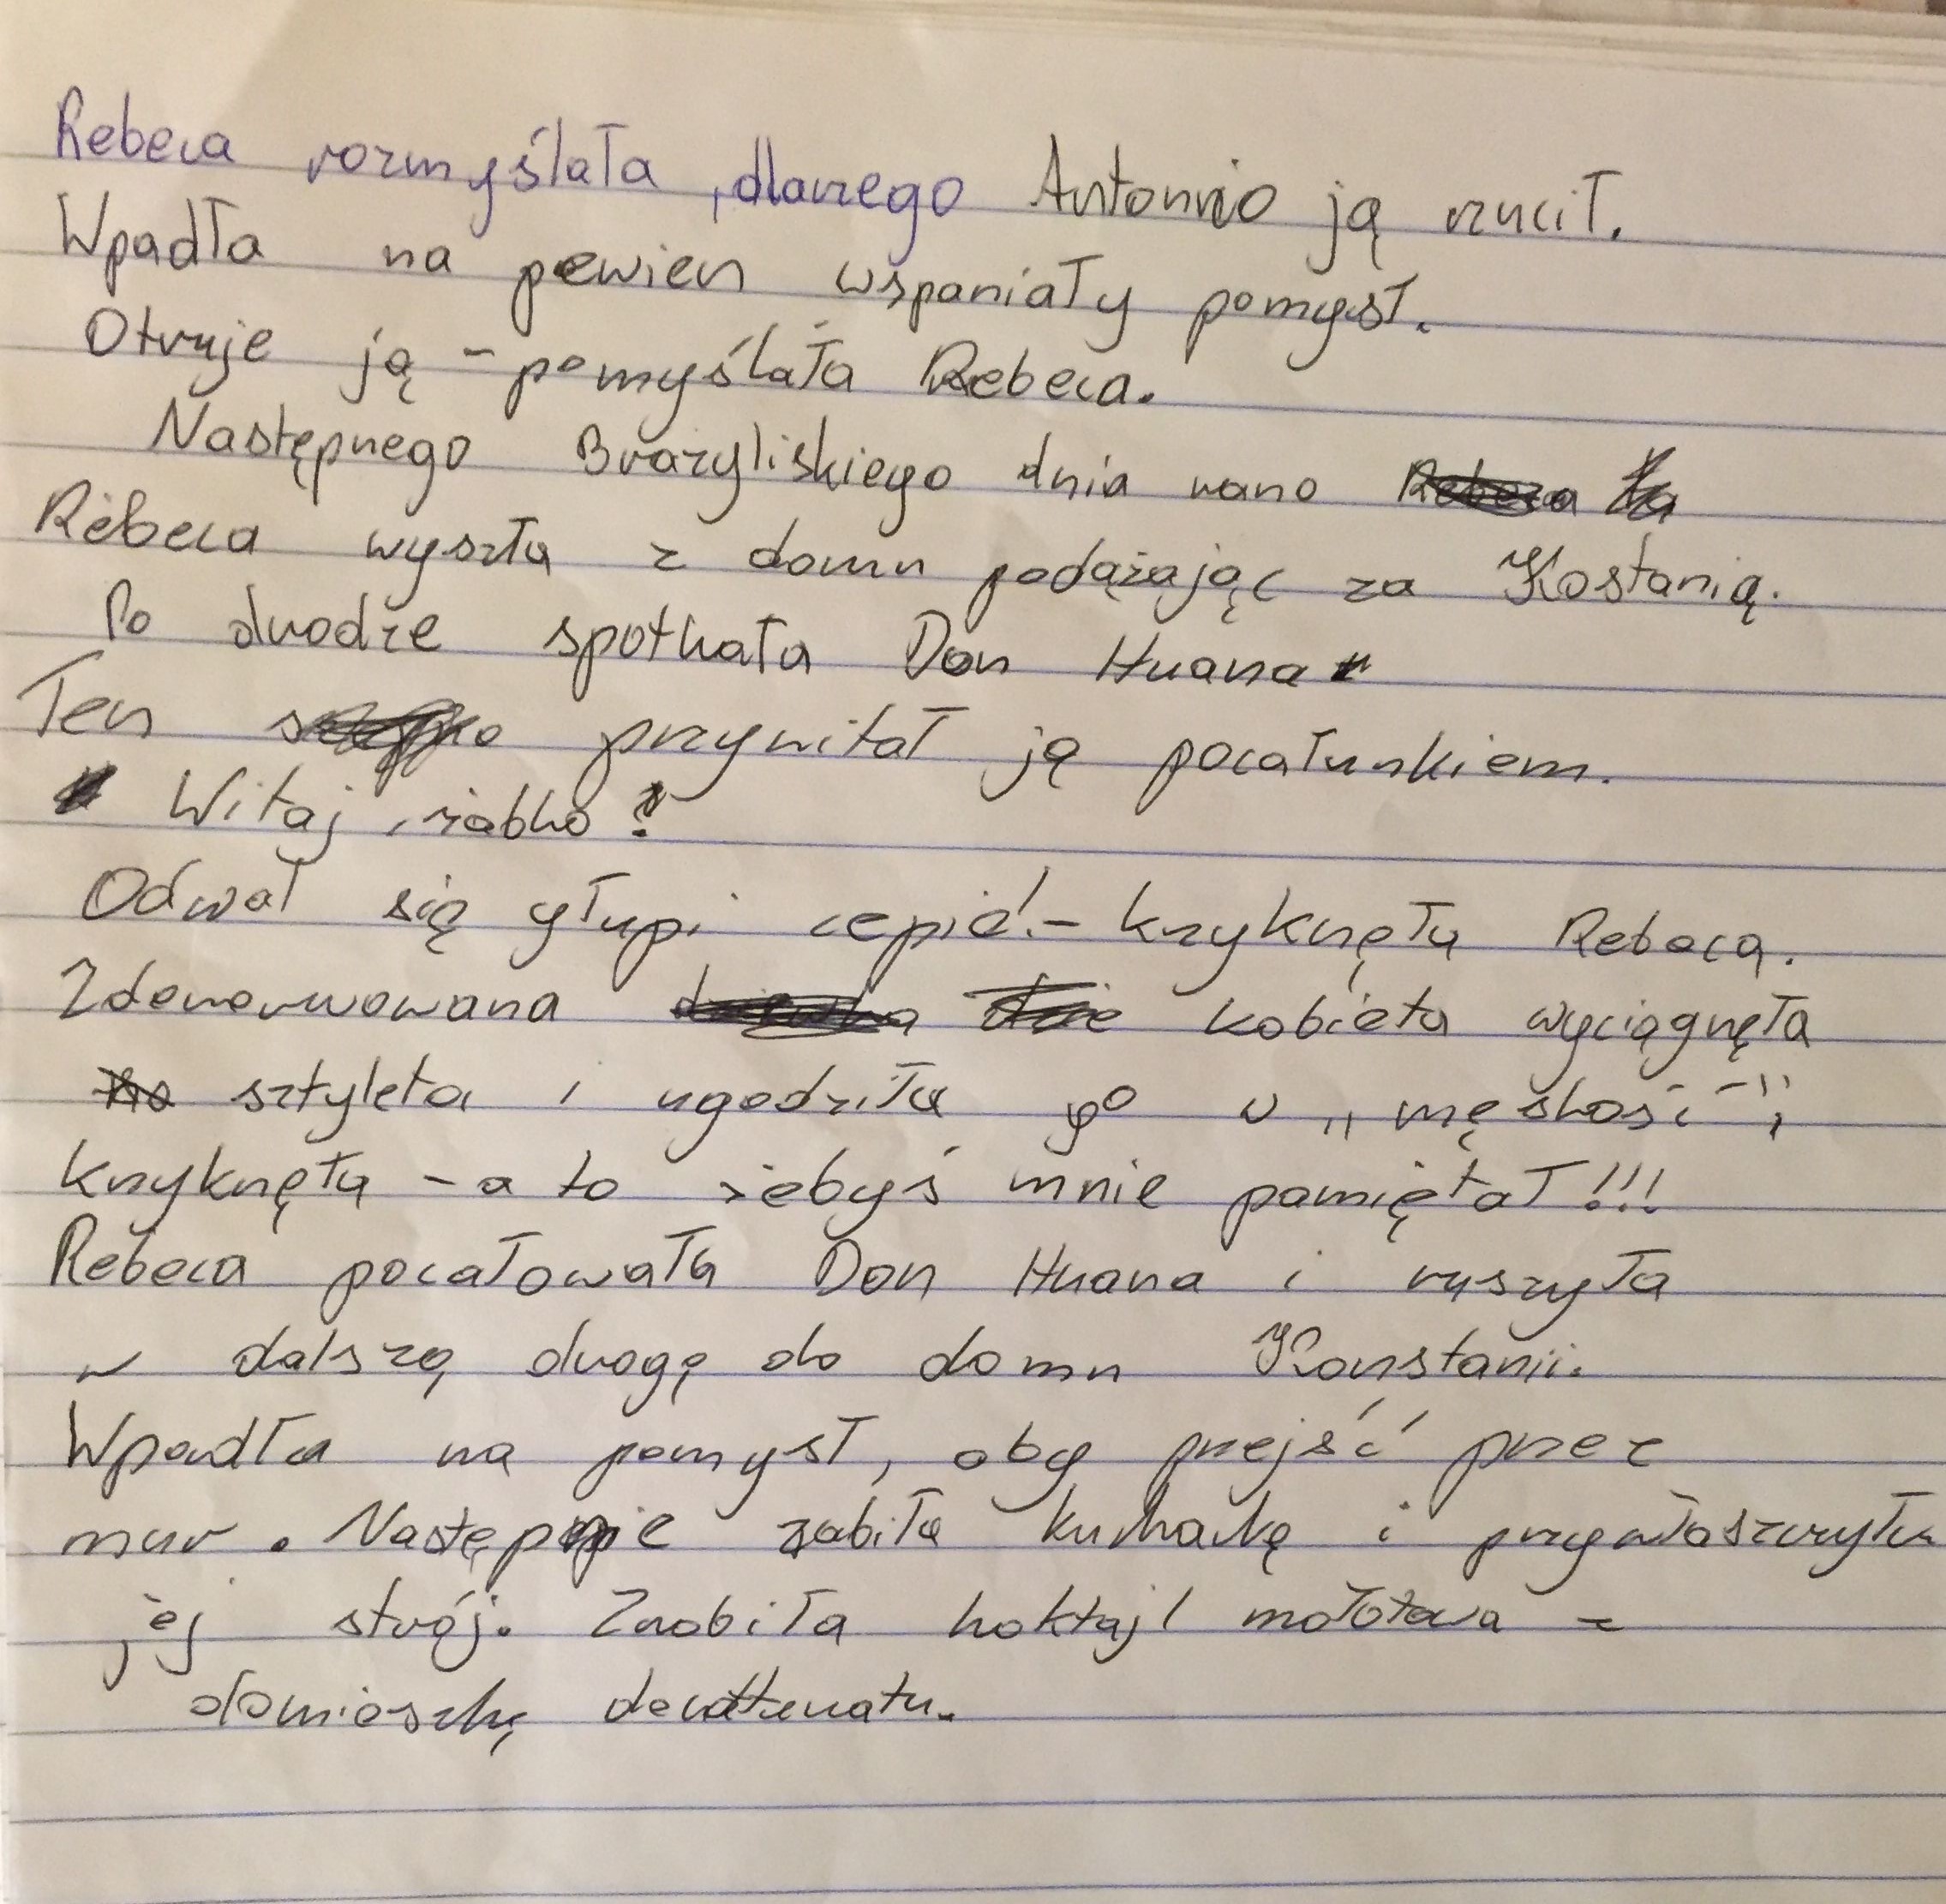 Rebeca rozmyślała, dlaczego Antonnio ją rzucił.
Wpadła na pewien wspaniały pomysł.
Otruje ją - pomyślała Rebeca.
Następnego Brazyliskiego dnia rano
Rebeca wyszła z domu podążając za Kostanią.
Po drodze spotkała Don Huana
Ten przywitał ją pocałunkiem.
Witaj, żabko!
Odwal się głupi cepie! - krzyknęła Rebeca.
Zdenerwowana kobieta wyciągnęła
sztyleta i ugodziła go w „męskość",
krzyknęła - a to żebyś mnie pamiętał!!!
Rebeca pocałowała Don Huana i ruszyła
w dalszą drogę do domu Konstanii.
Wpadła na pomysł, aby przejść przez
mur. Następnie zabiła kucharkę i przywłaszczyła
jej strój. Zrobiła koktajl mołotowa z
domieszką denaturatu.